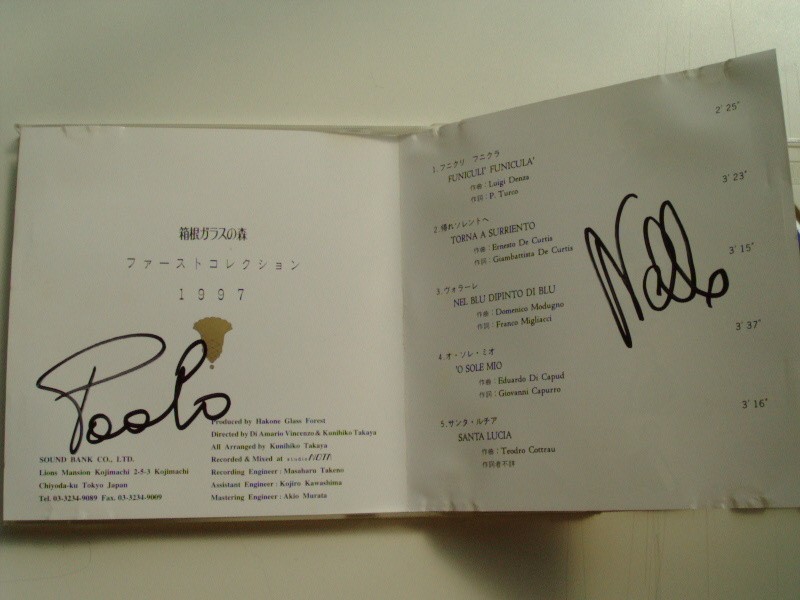 箱根ガラスの森
ファーストコレクション
1997
Paolo
Produced by Hakone Glass Forest
Directed by Di Amario Vincenzo & Kunihiko Takaya
All Arranged by Kunihiko Takaya
Recorded & Mixed at studio
Recording Engineer : Masaharu Takeno
Assistant Engineer : Kojiro Kawashima
Mastering Engineer : Akio Murata
SOUND BANK CO., LTD.
Lions Mansion Kojimachi 2-5-3 Kojimachi
Chiyoda-ku Tokyo Japan
Tel. 03-3234-9089 Fax. 03-3234-9009
1.フニクリ フニクラ 2'25"
FUNICULI' FUNICULA'
作曲:Luigi Denza
作詞:P. Turco
2.帰れソレントへ 3'23"
TORNA A SURRIENTO
作曲:Ernesto De Curtis
作詞:Giambattista De Curtis
3.ヴォラーレ 3'15"
NEL BLU DIPINTO DI BLU
作曲:Domenico Modugno
作詞:Franco Migliacci
4.オ・ソレ・ミオ 3'37"
'O SOLE MIO
作曲:Eduardo Di Capud
作詞:Giovanni Capurro
5.サンタ・ルチア 3'16"
SANTA LUCIA
作曲:Teodro Cottrau
作詞者不詳